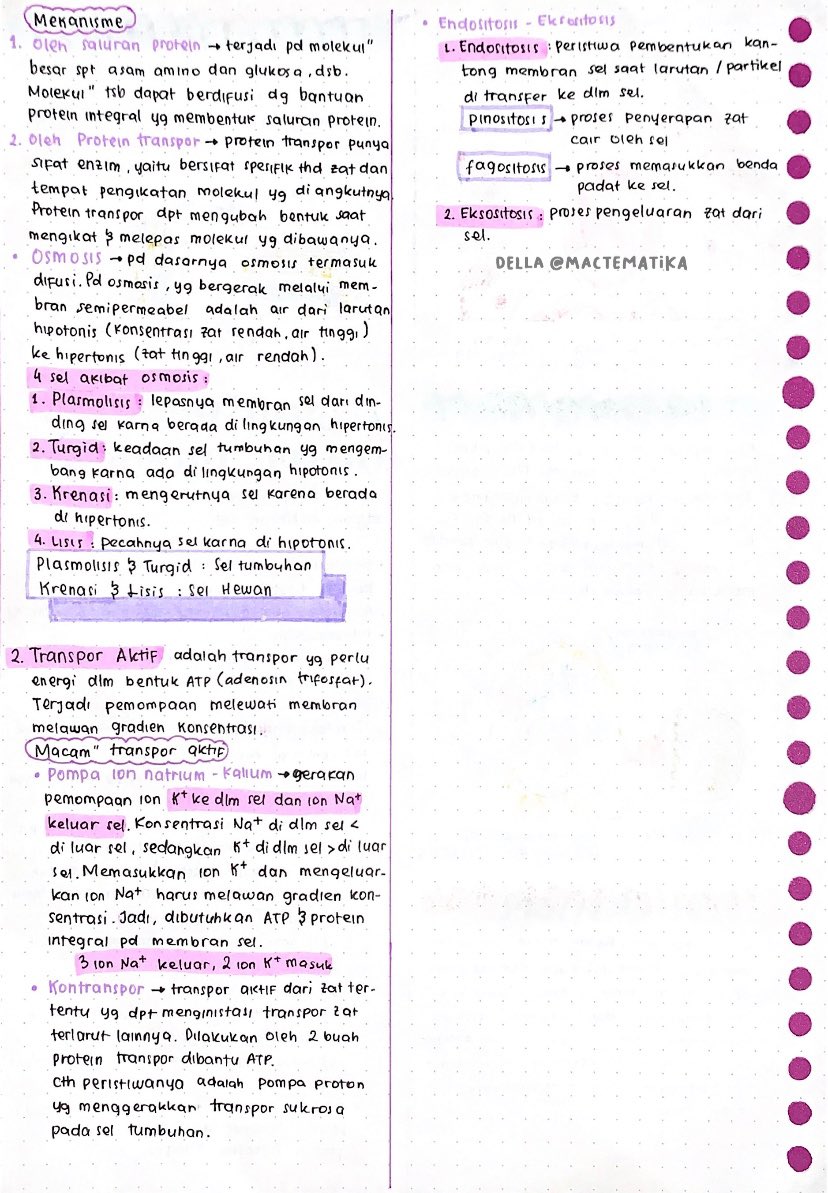 Mekanisme
1. Oleh saluran protein → terjadi pd molekul"
besar spt asam amino dan glukosa, dsb.
Molekul" tsb dapat berdifusi dg bantuan
protein integral yg membentuk saluran protein.
2. Oleh Protein transpor → protein transpor punya
sifat enzim, yaitu bersifat spesifik thd zat dan
tempat pengikatan molekul yg diangkutnya.
Protein transpor dpt mengubah bentuk saat
mengikat & melepas molekul yg dibawanya.
• OSMOSIS → pd dasarnya osmosis termasuk
difusi. Pd osmosis, yg bergerak melalui mem-
bran semipermeabel adalah air dari larutan
hipotonis (konsentrasi zat rendah, air tinggi)
ke hipertonis (zat tinggi, air rendah).
4 sel akibat osmosis:
1. Plasmolisis: lepasnya membran sel dari din-
ding sel karna berada di lingkungan hipertonis.
2. Turgid: keadaan sel tumbuhan yg mengem-
bang karna ada di lingkungan hipotonis.
3. Krenasi: mengerutnya sel karena berada
di hipertonis.
4. Lisis: pecahnya sel karna di hipotonis.
Plasmolisis & Turgid : Sel tumbuhan
Krenasi & Lisis : Sel Hewan
2. Transpor Aktif adalah transpor yg perlu
energi dlm bentuk ATP (adenosin trifosfat).
Terjadi pemompaan melewati membran
melawan gradien konsentrasi.
Macam" transpor aktif
• Pompa ion natrium - Kalium → gerakan
pemompaan ion K⁺ ke dlm sel dan ion Na⁺
keluar sel. Konsentrasi Na⁺ di dlm sel <
di luar sel, sedangkan K⁺ di dlm sel > di luar
sel. Memasukkan ion K⁺ dan mengeluar-
kan ion Na⁺ harus melawan gradien kon-
sentrasi. Jadi, dibutuhkan ATP & protein
integral pd membran sel.
3 ion Na⁺ keluar, 2 ion K⁺ masuk
• Kontranspor → transpor aktif dari zat ter-
tentu yg dpt menginistasi transpor zat
terlarut lainnya. Dilakukan oleh 2 buah
protein transpor dibantu ATP.
Cth peristiwanya adalah pompa proton
yg menggerakkan transpor sukrosa
pada sel tumbuhan.
• Endositosis - Eksositosis
1. Endositosis: peristiwa pembentukan kan-
tong membran sel saat larutan / partikel
di transfer ke dlm sel.
pinositosis → proses penyerapan zat
cair oleh sel
fagositosis → proses memasukkan benda
padat ke sel.
2. Eksositosis: proses pengeluaran zat dari
sel.
DELLA @MACTEMATIKA